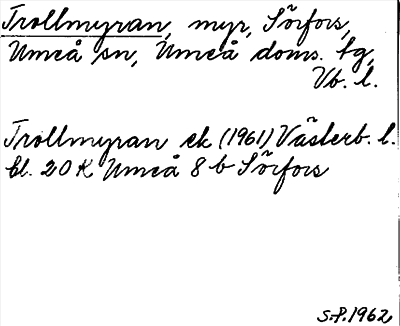 Trollmyran, myr, Sörfors,
Umeå sn, Umeå doms. tg,
Vb. l.
Trollmyran ek (1961) Västerb. l.
bl. 20 K Umeå 8 b Sörfors
S.P. 1962